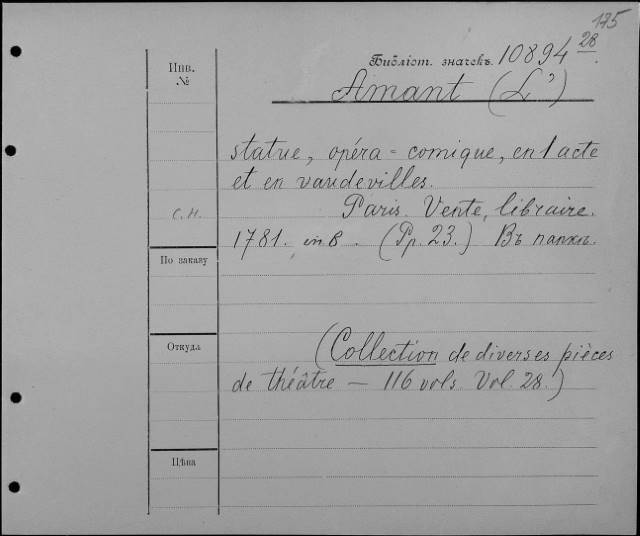 175
Инв.
№
Библіот. значекъ. 10894 28
Amant (L')
statue, opéra=comique, en 1 acte
et en vaudevilles.
С.Н. Paris. Vente, libraire.
1781. in 8. (Pp. 23.) Въ папкѣ.
По заказу
Откуда
(Collection de diverses pièces
de théâtre — 116 vols Vol. 28.)
Цѣна